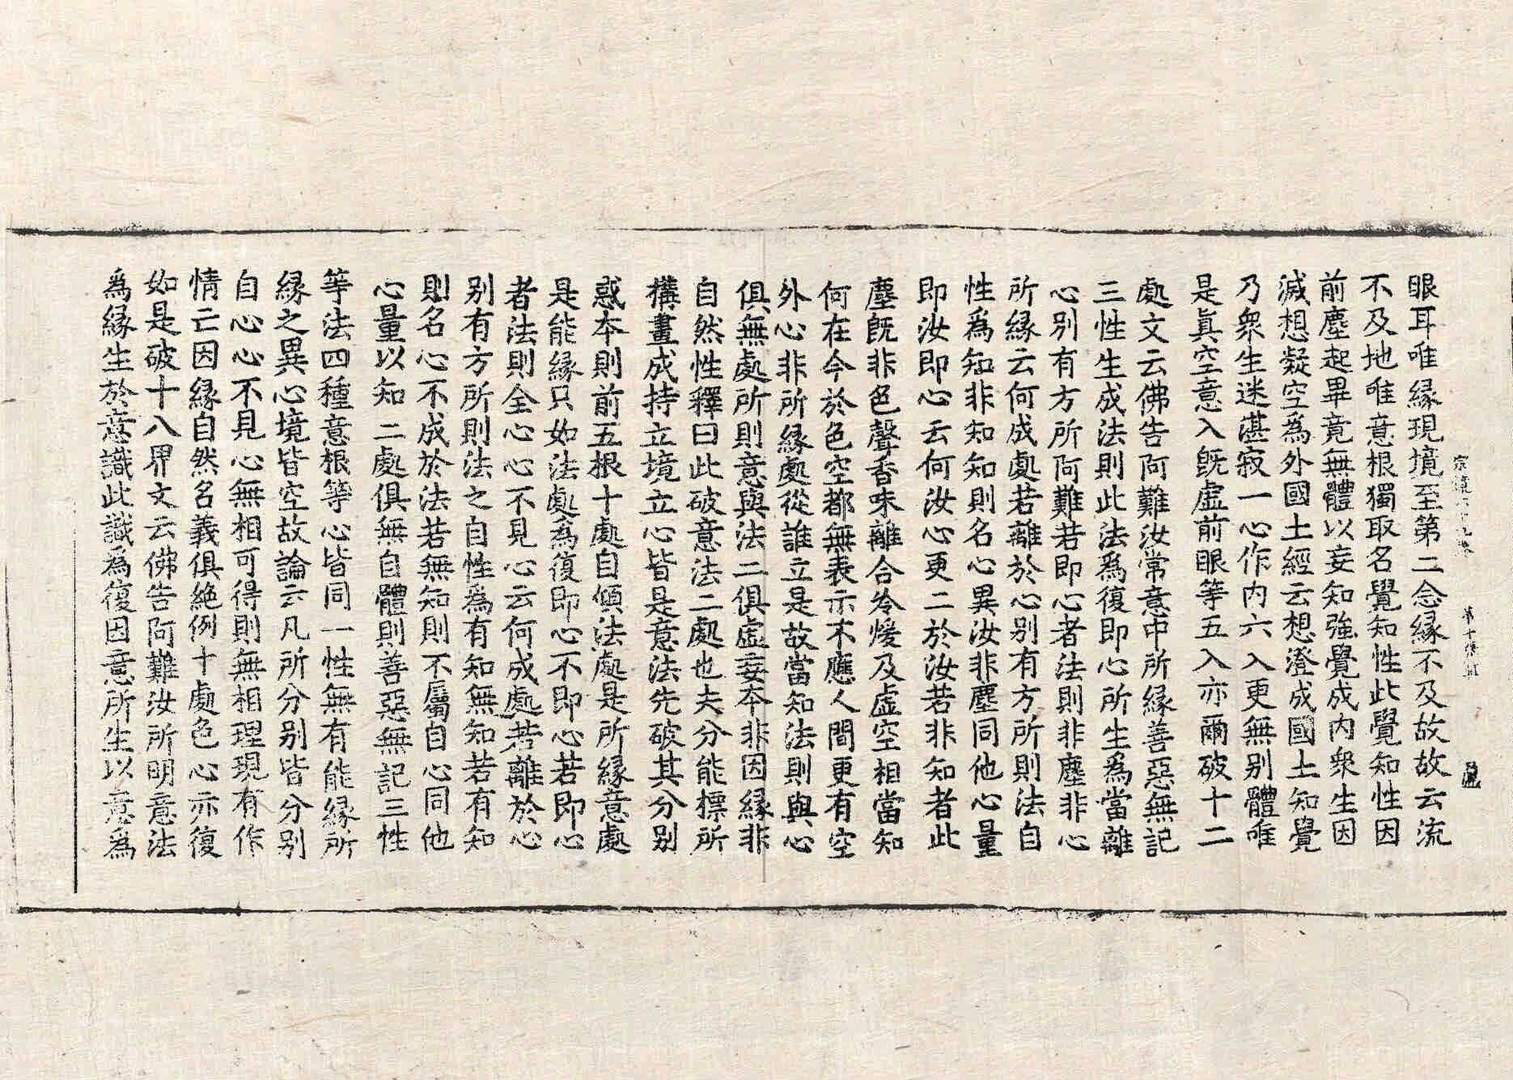 眼耳唯縁現境至第二念縁不及故故云流
不及地唯意根獨取名覺知性此覺知性因
前塵起畢竟無體以妄知強覺成內衆生因
滅想凝空為外國土經云想澄成國土知覺
乃衆生迷湛寂一心作内六入更無別體唯
是眞空意入旣虛前眼等五入亦爾破十二
處文云佛告阿難汝常意中所縁善惡無記
三性生成法則此法爲復即心所生爲當離
心別有方所阿難若即心者法則非塵非心
所縁云何成處若離於心別有方所則法自
性爲知非知知則名心異汝非塵同他心量
即汝即心云何汝心更二於汝若非知者此
塵旣非色聲香味離合冷煖及虛空相當知
何在今於色空都無表示不應人間更有空
外心非所縁處從誰立是故當知法則與心
俱無處所則意與法二俱虛妄本非因縁非
自然性釋曰此破意法二處也夫分能標所
構畫成持立境立心皆是意法先破其分别
惑本則前五根十處自傾法處是所縁意處
是能縁只如法處為復即心不即心若即心
者法則全心心不見心云何成處若離於心
别有方所則法之自性爲有知無知若有知
則名心不成於法若無知則不屬自心同他
心量以知二處俱無自體則善惡無記三性
等法四種意根等心皆同一性無有能縁所
縁之異心境皆空故論云凡所分别皆分别
自心心不見心無相可得則無相理現有作
情亡因縁自然名義俱絶例十處色心亦復
如是破十八界文云佛告阿難汝所明意法
爲縁生於意識此識為復因意所生以意爲